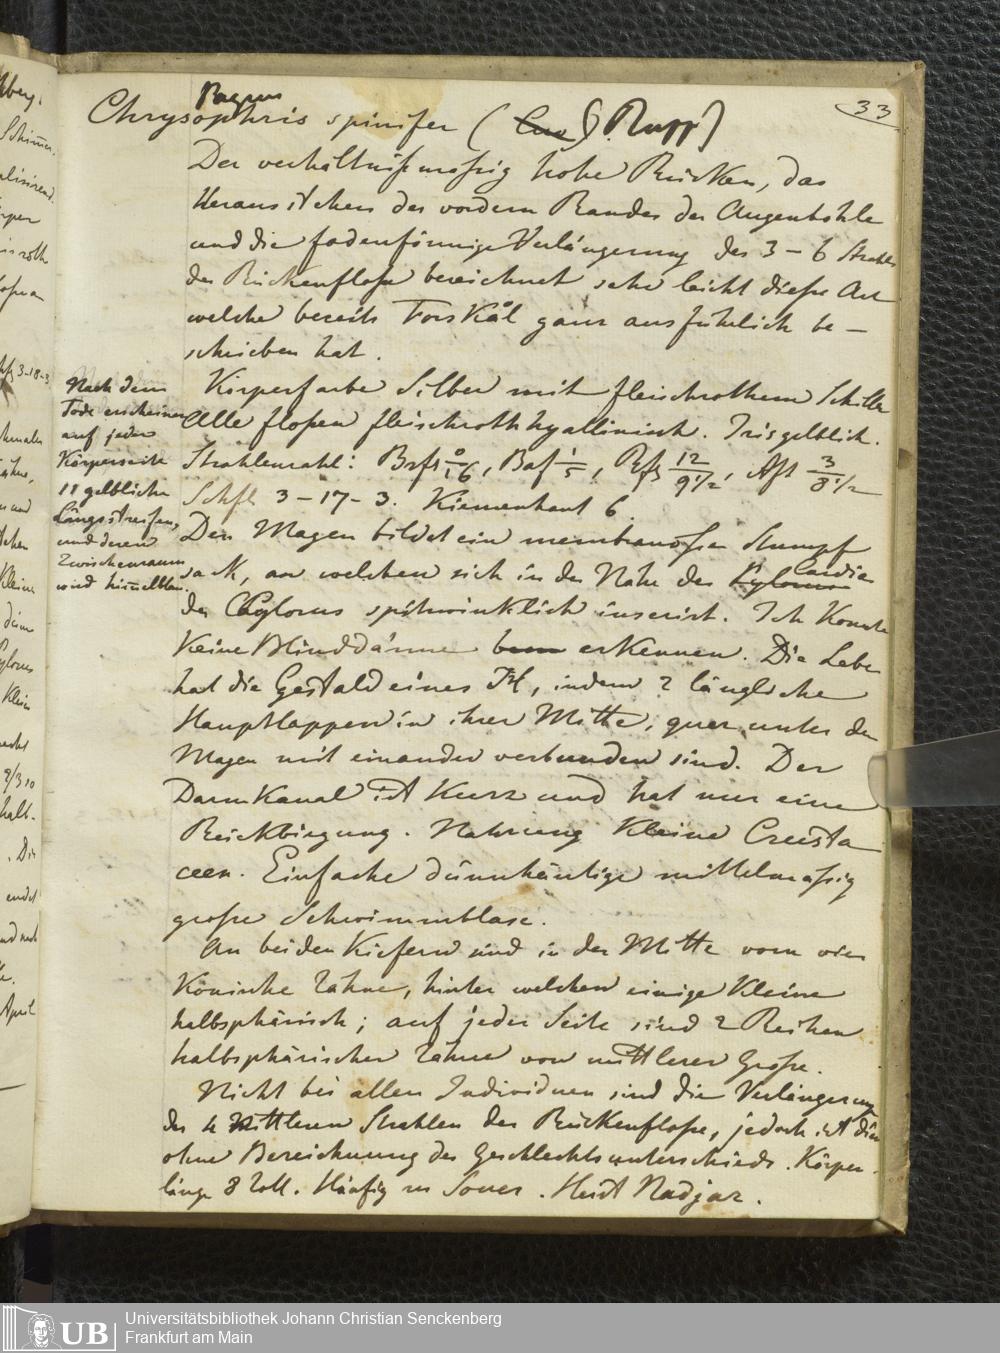 33
Pagrus
Chrysophris spinifer (Cuv) Rupp)
Der verhältnißmäßig hohe Rücken, das
Herausstehen des vordern Randes der Augenhöhle
und die fadenförmige Verlängerung des 3 – 6 Strahls
der Rückenfloße bezeichnet sehr leicht dieße Art
welche bereits Forskål ganz ausführlich be-
schrieben hat.
Körperfarbe Silber mit fleischrothem Schiller
Alle floßen fleischroth hyallinisch. Iris gelblich.
Strahlenzahl: Brfs 0/16, Baf 1/5, Rfs 12/9½, Afs 3/8½
Schfl 3-17-3. Kiemenhaut 6
Der Magen bildet ein membranoßer Stumpf
sack, an welchen sich in der Nähe der Cardia
der Pylorus spitzwinklich inserirt. Ich konnte
keine Blinddärme erkennen. Die Leber
hat die Gestald eines H, indem 2 längliche
Hauptlappen in ihrer Mitte, quer unter dem
Magen mit einander verbunden sind. Der
Darmkanal ist kurz und hat nur eine
Rückbiegung. Nahrung kleine Crusta
ceen. Einfache dünnhäutige mittelmäßig
große Schwimmblase.
An beiden Kiefern sind in der Mitte vorn vier
konische Zähne, hinter welchen einige kleine
halbsphärisch; auf jeder Seite sind 2 Reihen
halbsphärischer Zähne von mittlerer Größe.
Nicht bei allen Individuen sind die Verlängerung
der 4 mittleren Strahlen der Rückenfloße, jedoch ist dies
ohne Bezeichnung des Geschlechtsunterschieds. Körper-
länge 8 Zoll. Häufig zu Sour. Heist Nadjar.
Nach dem
Tode erscheinen
auf jeder
Körperseite
11 gelbliche
Längsstreifen,
und deren
Zwischenraum
wird him̄elblau.
Universitätsbibliothek Johann Christian Senckenberg
Frankfurt am Main
UB